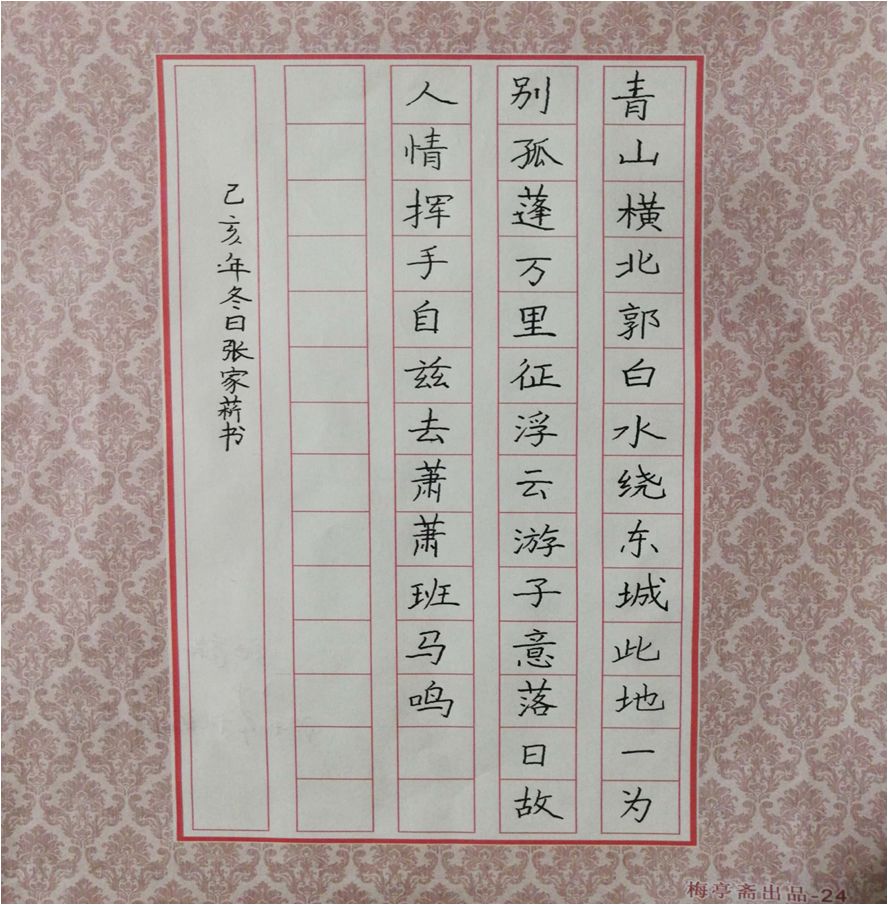 青山横北郭白水绕东城此地一为
别孤蓬万里征浮云游子意落日故
人情挥手自兹去萧萧班马鸣
己亥年冬日张家薪书
梅亭斋出品-24